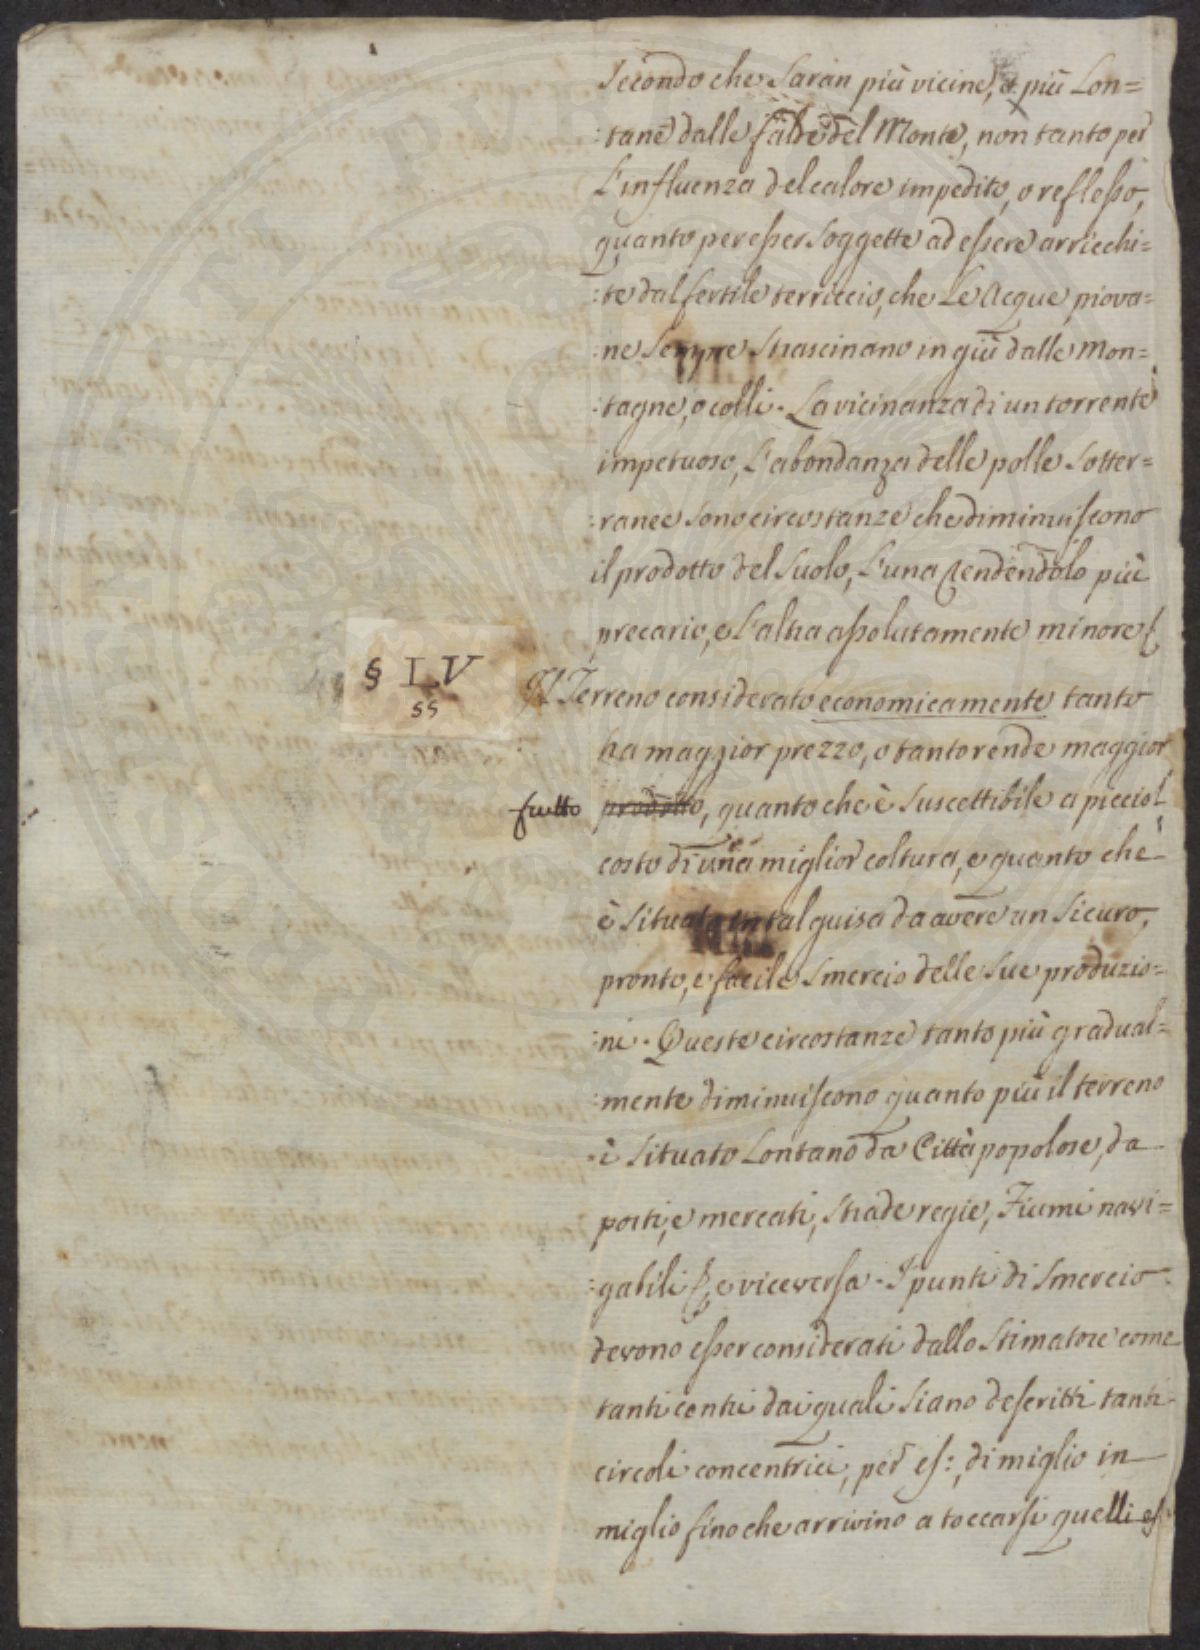 secondo che saran più vicine, o più lon=
:tane dalle falde del Monte, non tanto per
L'influenza del calore impedito, o reflesso,
quanto per esser soggette ad essere arricchi=
:te dal fertile terriccio, che le Acque piova=
:ne sempre strascinano in giù dalle Mon=
:tagne, o colli. La vicinanza di un torrente
impetuoso, L'abondanza delle polle sotter=
:ranee sono circostanze che diminuiscono
il prodotto del suolo, L'una rendendolo più
precario, e L'altra assolutamente minore
§ LV
55
Il Terreno considerato economicamente tanto
ha maggior prezzo, o tanto rende maggior
frutto prodotto, quanto che è suscettibile a picciol
costo di una miglior coltura, e quanto che
è situato in tal guisa da avere un sicuro,
pronto, e facile smercio delle sue produzio=
:ni. Queste circostanze tanto più gradual=
:mente diminuiscono quanto più il terreno
è situato Lontano da Città popolose, da
porti, e mercati, strade regie, Fiumi navi=
:gabili e viceversa. I punti di smercio
devono esser considerati dallo Stimatore come
tanti centri dai quali siano descritti tanti
circoli concentrici, per es:, di miglio in
miglio fino che arrivino a toccarsi quelli es